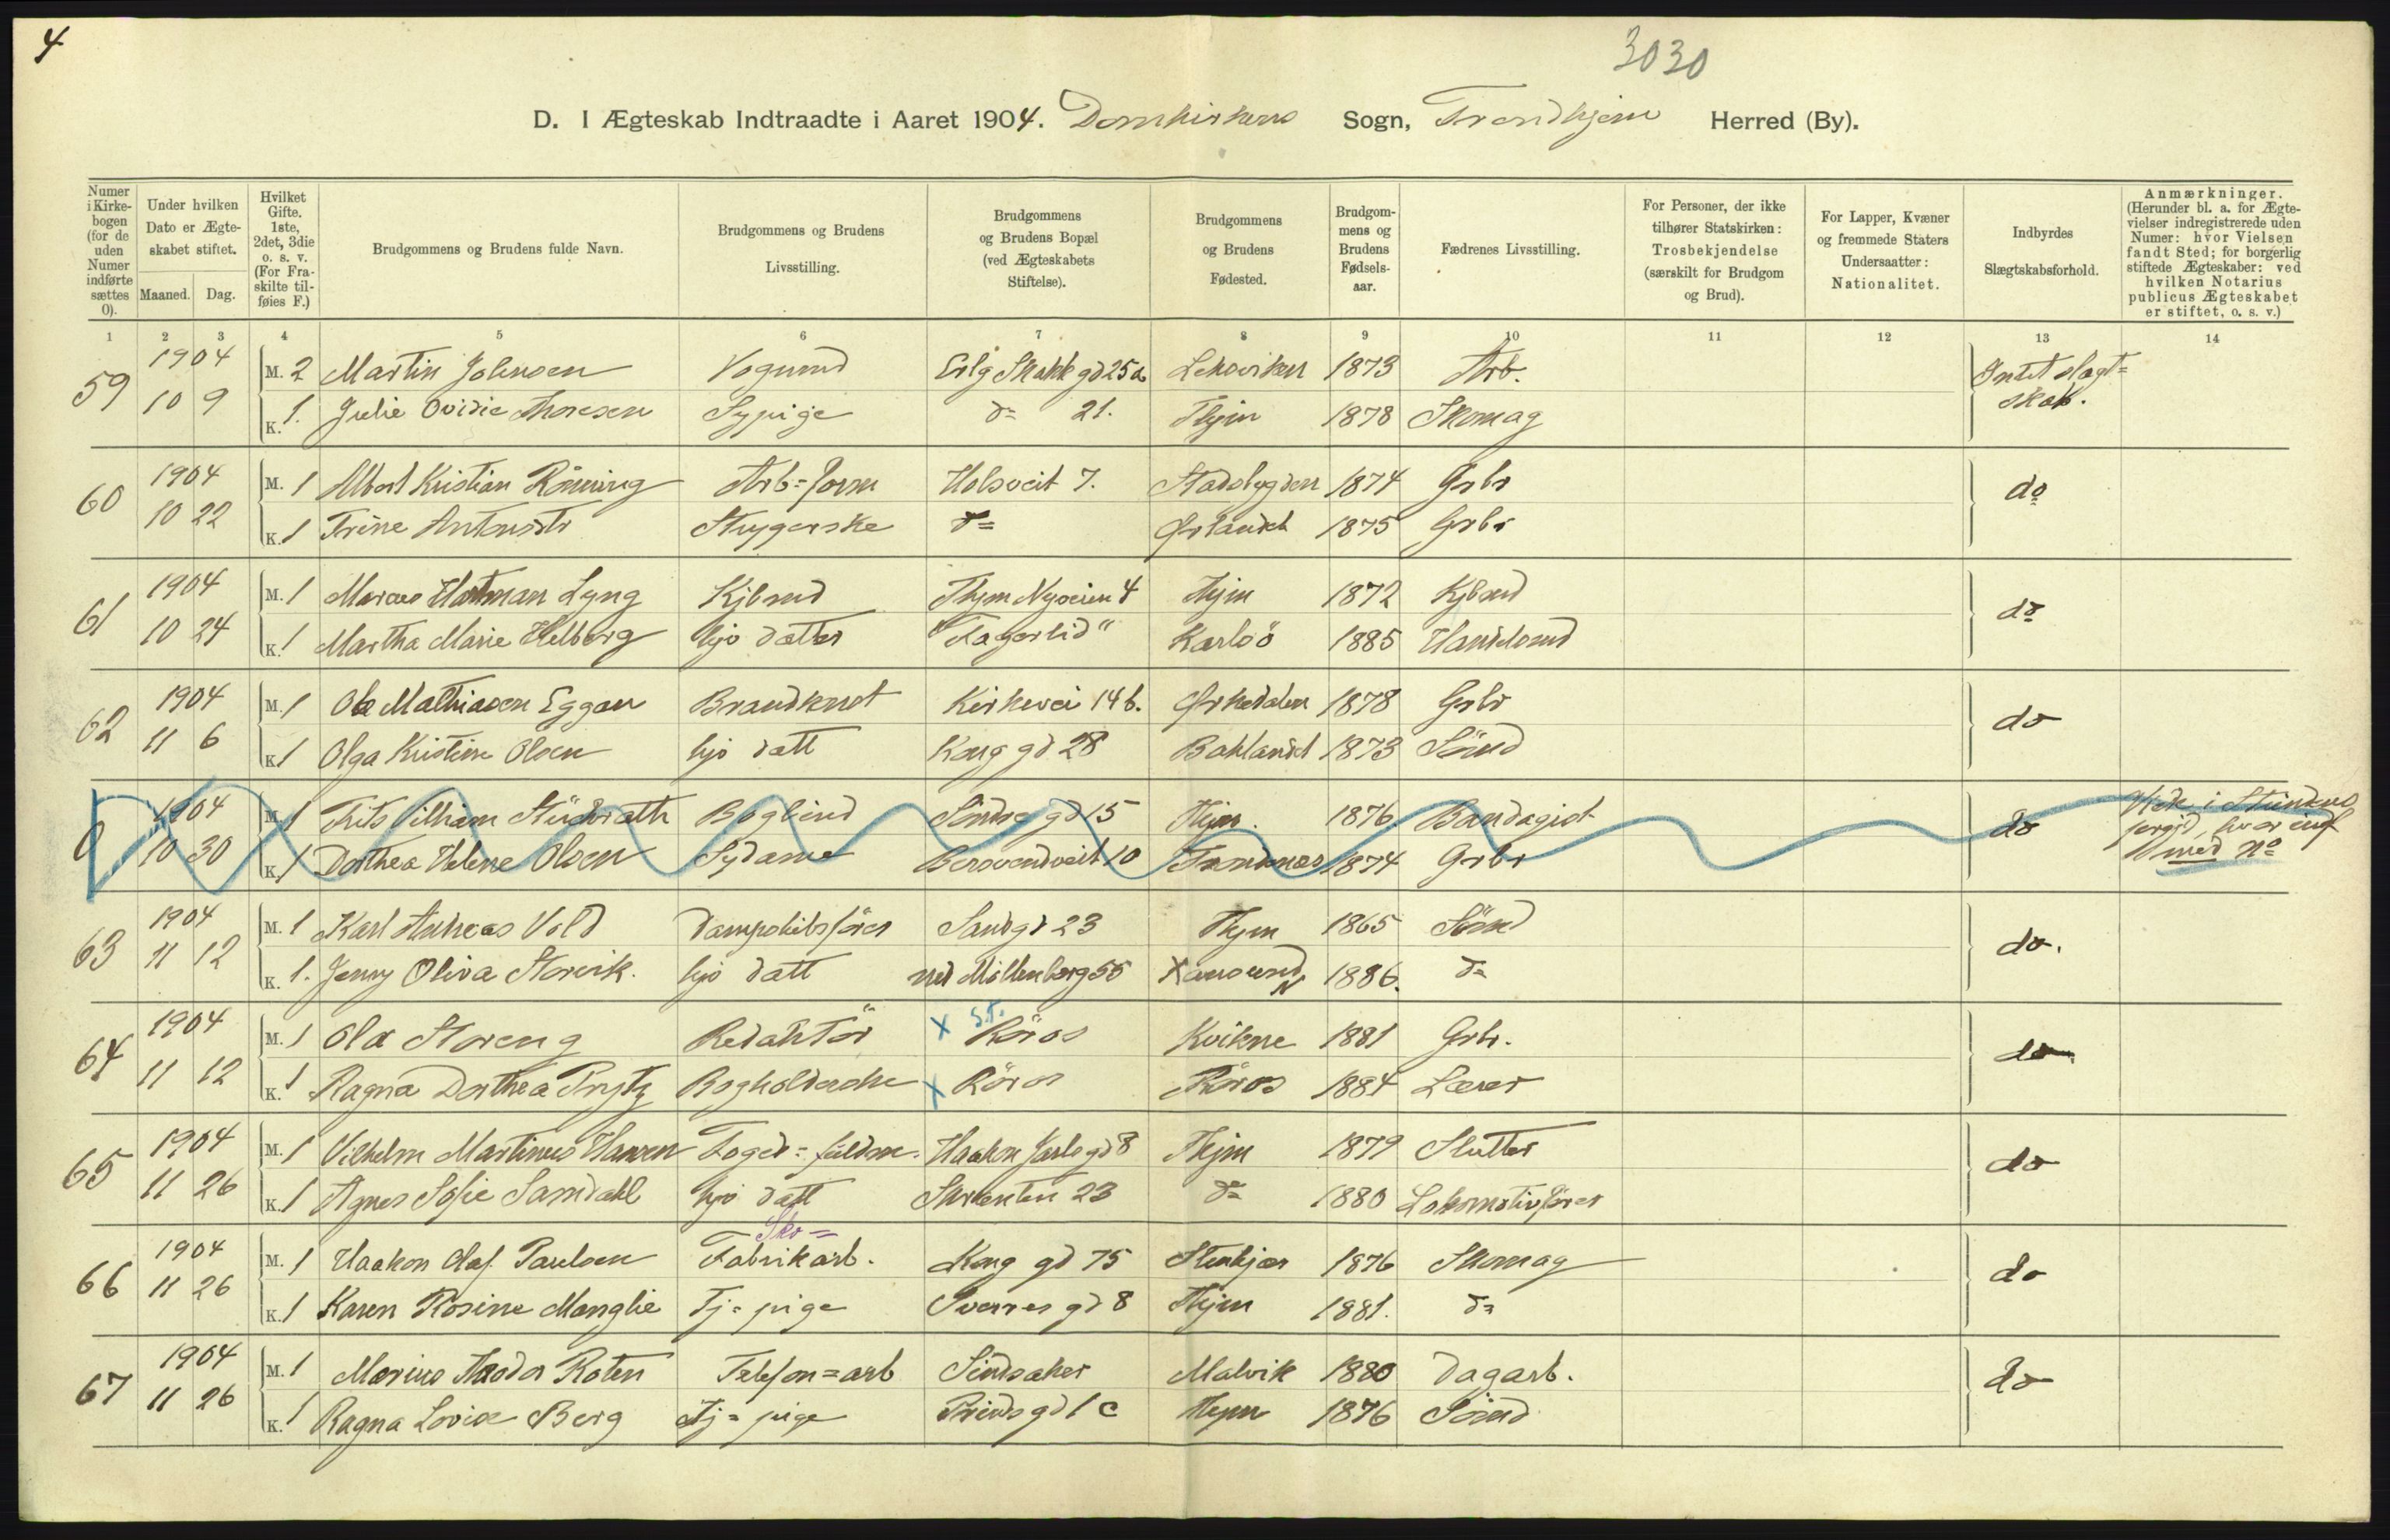 4
3030
D. I Ægteskab Indtraadte i Aaret 1904. Domkirkens Sogn, Trondhjem Herred (By).
Numer i Kirkebogen (for de uden Numer indførte sættes 0).
Under hvilken Dato er Ægteskabet stiftet. Maaned. Dag.
Hvilket Gifte. 1ste, 2det, 3die o. s. v. (For Fraskilte tilføies F.)
Brudgommens og Brudens fulde Navn.
Brudgommens og Brudens Livsstilling.
Brudgommens og Brudens Bopæl (ved Ægteskabets Stiftelse).
Brudgommens og Brudens Fødested.
Brudgommens og Brudens Fødselsaar.
Fædrenes Livsstilling.
For Personer, der ikke tilhører Statskirken: Trosbekjendelse (særskilt for Brudgom og Brud).
For Lapper, Kvæner og fremmede Staters Undersaatter: Nationalitet.
Indbyrdes Slægtskabsforhold.
Anmærkninger. (Herunder bl. a. for Ægtevielser indregistrerede uden Numer: hvor Vielsen fandt Sted; for borgerlig stiftede Ægteskaber: ved hvilken Notarius publicus Ægteskabet er stiftet, o. s. v.)
1 2 3 4 5 6 7 8 9 10 11 12 13 14
59 1904 M. 2 Martin Johnsen Vognmd Erlg Skakk gd 25a Leksviken 1873 Arb. Intet slægt=
10 9 K. 1. Julie Ovidie Thoresen Sypige do 21. Thjm 1878 Skomag skab.
60 1904 M. 1 Albert Kristian Rönning Arb=form Holsveit 7. Stadsbygden 1874 Grbr do
10 22 K. 1 Trine Antonsdtr Strygerske do Ørlandet 1875 Grbr
61 1904 M. 1 Marcus Hartman Lyng Kjbmd Thjm Nyveien 4 Thjm 1872 Kjbmd do
10 24 K. 1 Martha Marie Helberg hjv datter "Fagerlid" Karlsö 1885 Handelsmd
62 1904 M. 1 Ole Mathiasen Eggan Brandknst Kirkevei 14b. Orkedalen 1878 Grbr do
11 6 K. 1 Olga Kristine Olsen hjv datt Kong gd 28 Baklandet 1873 Sömd
0 1904 M. 1 Vilhiam Boglind Söndre gd 15 Thjm. 1876 Bandagist do
10 30 K. 1 Dorthea Helene Olsen Sydame 10 1874 Grbr med No
63 1904 M. 1 Karl Andreas Vold Dampskibsförer Sandgd 23 Thjm 1865 Sömd do.
11 12 K. 1. Jenny Oliva Storvik. hjv datt ned Möllenberg 55 Xansund N 1886. do
64 1904 M. 1 Ola Storeng Redaktör X S.T. Röros Kvikne 1881 Grbr. do
11 12 K. 1 Ragna Dorthea Prytz Bogholderske X Röros Röros 1884 Lærer
65 1904 M. 1 Vilhelm Martinus Hansen Foged=fuldm. Haakon Jarls gd 8 Thjm 1879 Slutter do
11 26 K. 1 Agnes Sofie Samdahl hjv datt Skrænten 23 do 1880 Lokomotivförer
66 1904 M. 1 Haakon Olaf Paulsen Sko= Fabrikarb. Kong gd 75 Stenkjær 1876 Skomag do
11 26 K. 1 Karen Rosine Manglie Tj=pige Sverres gd 8 Thjm 1881. do
67 1904 M. 1 Marius Theodor Roten Telefon=arb Sindsaker Malvik 1880 Dagarb. do
11 26 K. 1 Ragna Lovise Berg Tj=pige Prinds gd 1c Thjm 1876 Sömd